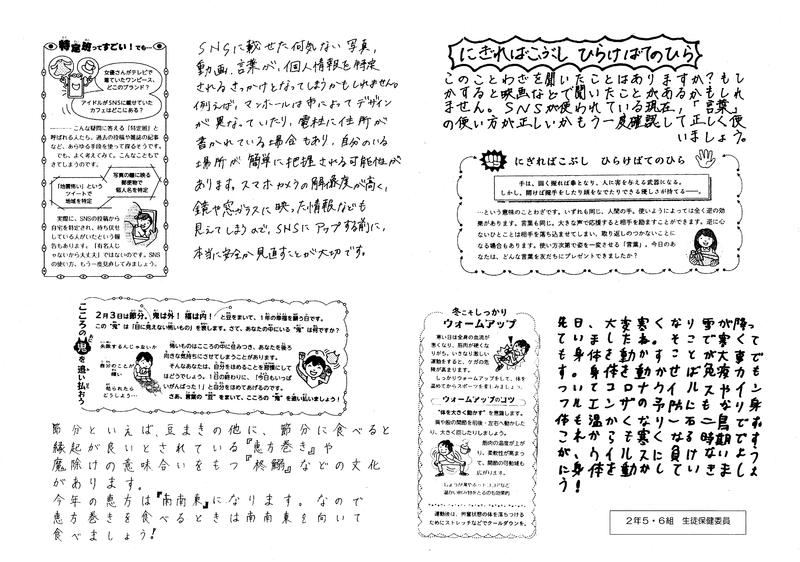 特定班ってすごい！でも…
女優さんがテレビで
着ていたワンピース、
どこのブランド？
アイドルがSNSに載せていた
カフェはどこにある？
…………こんな疑問に答える「特定班」と
呼ばれる人たち。過去の投稿や雑誌の記事
など、あらゆる手段を使って探るそうです。
でも、よく考えてみて。こんなこともで
きてしまうのです。
「地震怖い」という
ツイートで
地域を特定
写真の瞳に映る
郵便物で
個人名を特定
実際に、SNSの投稿から
自宅を特定され、待ち伏せ
している人がいたという報
告もあります。「有名人じ
ゃないから大丈夫」ではないのです。SNS
の使い方、もう一度見直してみましょう。
SNSに載せた何気ない写真、
動画、言葉が、個人情報を特定
されるきっかけとなってしまうかもしれません。
例えば、マンホールは市によってデザイン
が異なっていたり、電柱に住所が
書かれている場合もあり、自分のいる
場所が簡単に把握される可能性が
あります。スマホカメラの解像度が高く、
鏡や窓ガラスに映った情報なども
見えてしまうので、SNSにアップする前に、
本当に安全か見直すことが大切です。
にぎればこぶし ひらけばてのひら
このことわざを聞いたことはありますか？もし
かすると映画などで聞いたことがあるかもしれ
ません。SNSが使われている現在、「言葉」
の使い方が正しいかもう一度確認して正しく使
いましょう。
にぎればこぶし ひらけばてのひら
手は、固く握れば拳となり、人に害を与える武器になる。
しかし、開けば握手をしたり頭をなでたりできる優しさが持てる――。
…という意味のことわざです。いずれも同じ、人間の手。使いようによっては全く逆の効
果があります。言葉も同じ。大きな声で応援すると相手を励ますことができます。逆に心
ないひとことは相手を落ち込ませてしまい、取り返しのつかないことに
なる場合もあります。使い方次第で姿を一変させる「言葉」。今日のあ
なたは、どんな言葉を友だちにプレゼントできましたか？
こころの鬼を追い払おう
2月3日は節分。「鬼は外！福は内！」と豆をまいて、1年の幸福を願う日です。
この“鬼”は「目に見えない怖いもの」を表します。さて、あなたの中にいる“鬼”は何ですか？
失敗するんじゃないか
自分のことが
嫌い
怒られたら
どうしよう…
怖いものはこころの中に住みつき、あなたを後ろ
向きな気持ちにさせてしまうことがあります。
そんなあなたは、自分をほめることを習慣にして
はどうでしょう。1日の終わりに、「今日もいっぱ
いがんばった！」と自分をほめてあげるのです。
さあ、言葉の“豆”をまいて、こころの“鬼”を追い払いましょう！
節分といえば、豆まきの他に、節分に食べると
縁起が良いとされている『恵方巻き』や
魔除けの意味合いをもつ『柊鰯』などの文化
があります。
今年の恵方は『南南東』になります。なので
恵方巻きを食べるときは南南東を向いて
食べましょう！
冬こそしっかり
ウォームアップ
寒い日は全身の血流が
悪くなり、筋肉が硬くな
りがち。いきなり激しい
運動をすると、ケガの危
険が高まります。
しっかりウォームアップをして、体を
温めてからスポーツを楽しみましょう。
ウォームアップのコツ
“体を大きく動かす”を意識します。
肩や股の関節を前後・左右へ動かした
り、大きく回したりしましょう。
筋肉の温度が上が
り、柔軟性が高まっ
て、関節の可動域も
広がります。
しょうが湯やホットココアなど
温かい飲み物をとるのも効果的
運動後は、興奮状態の体を落ちつける
ためにストレッチなどでクールダウンを。
先日、大変寒くなり雪が降っ
ていましたね。そこで寒くて
も身体を動かすことが大事で
す。身体を動かせば免疫力も
ついてコロナウイルスやイン
フルエンザの予防にもなり身
体も温かくなり一石二鳥です
これからも寒くなる時期です
が、ウイルスに負けないよう
に身体を動かしていきましょ
う！
2年5・6組 生徒保健委員